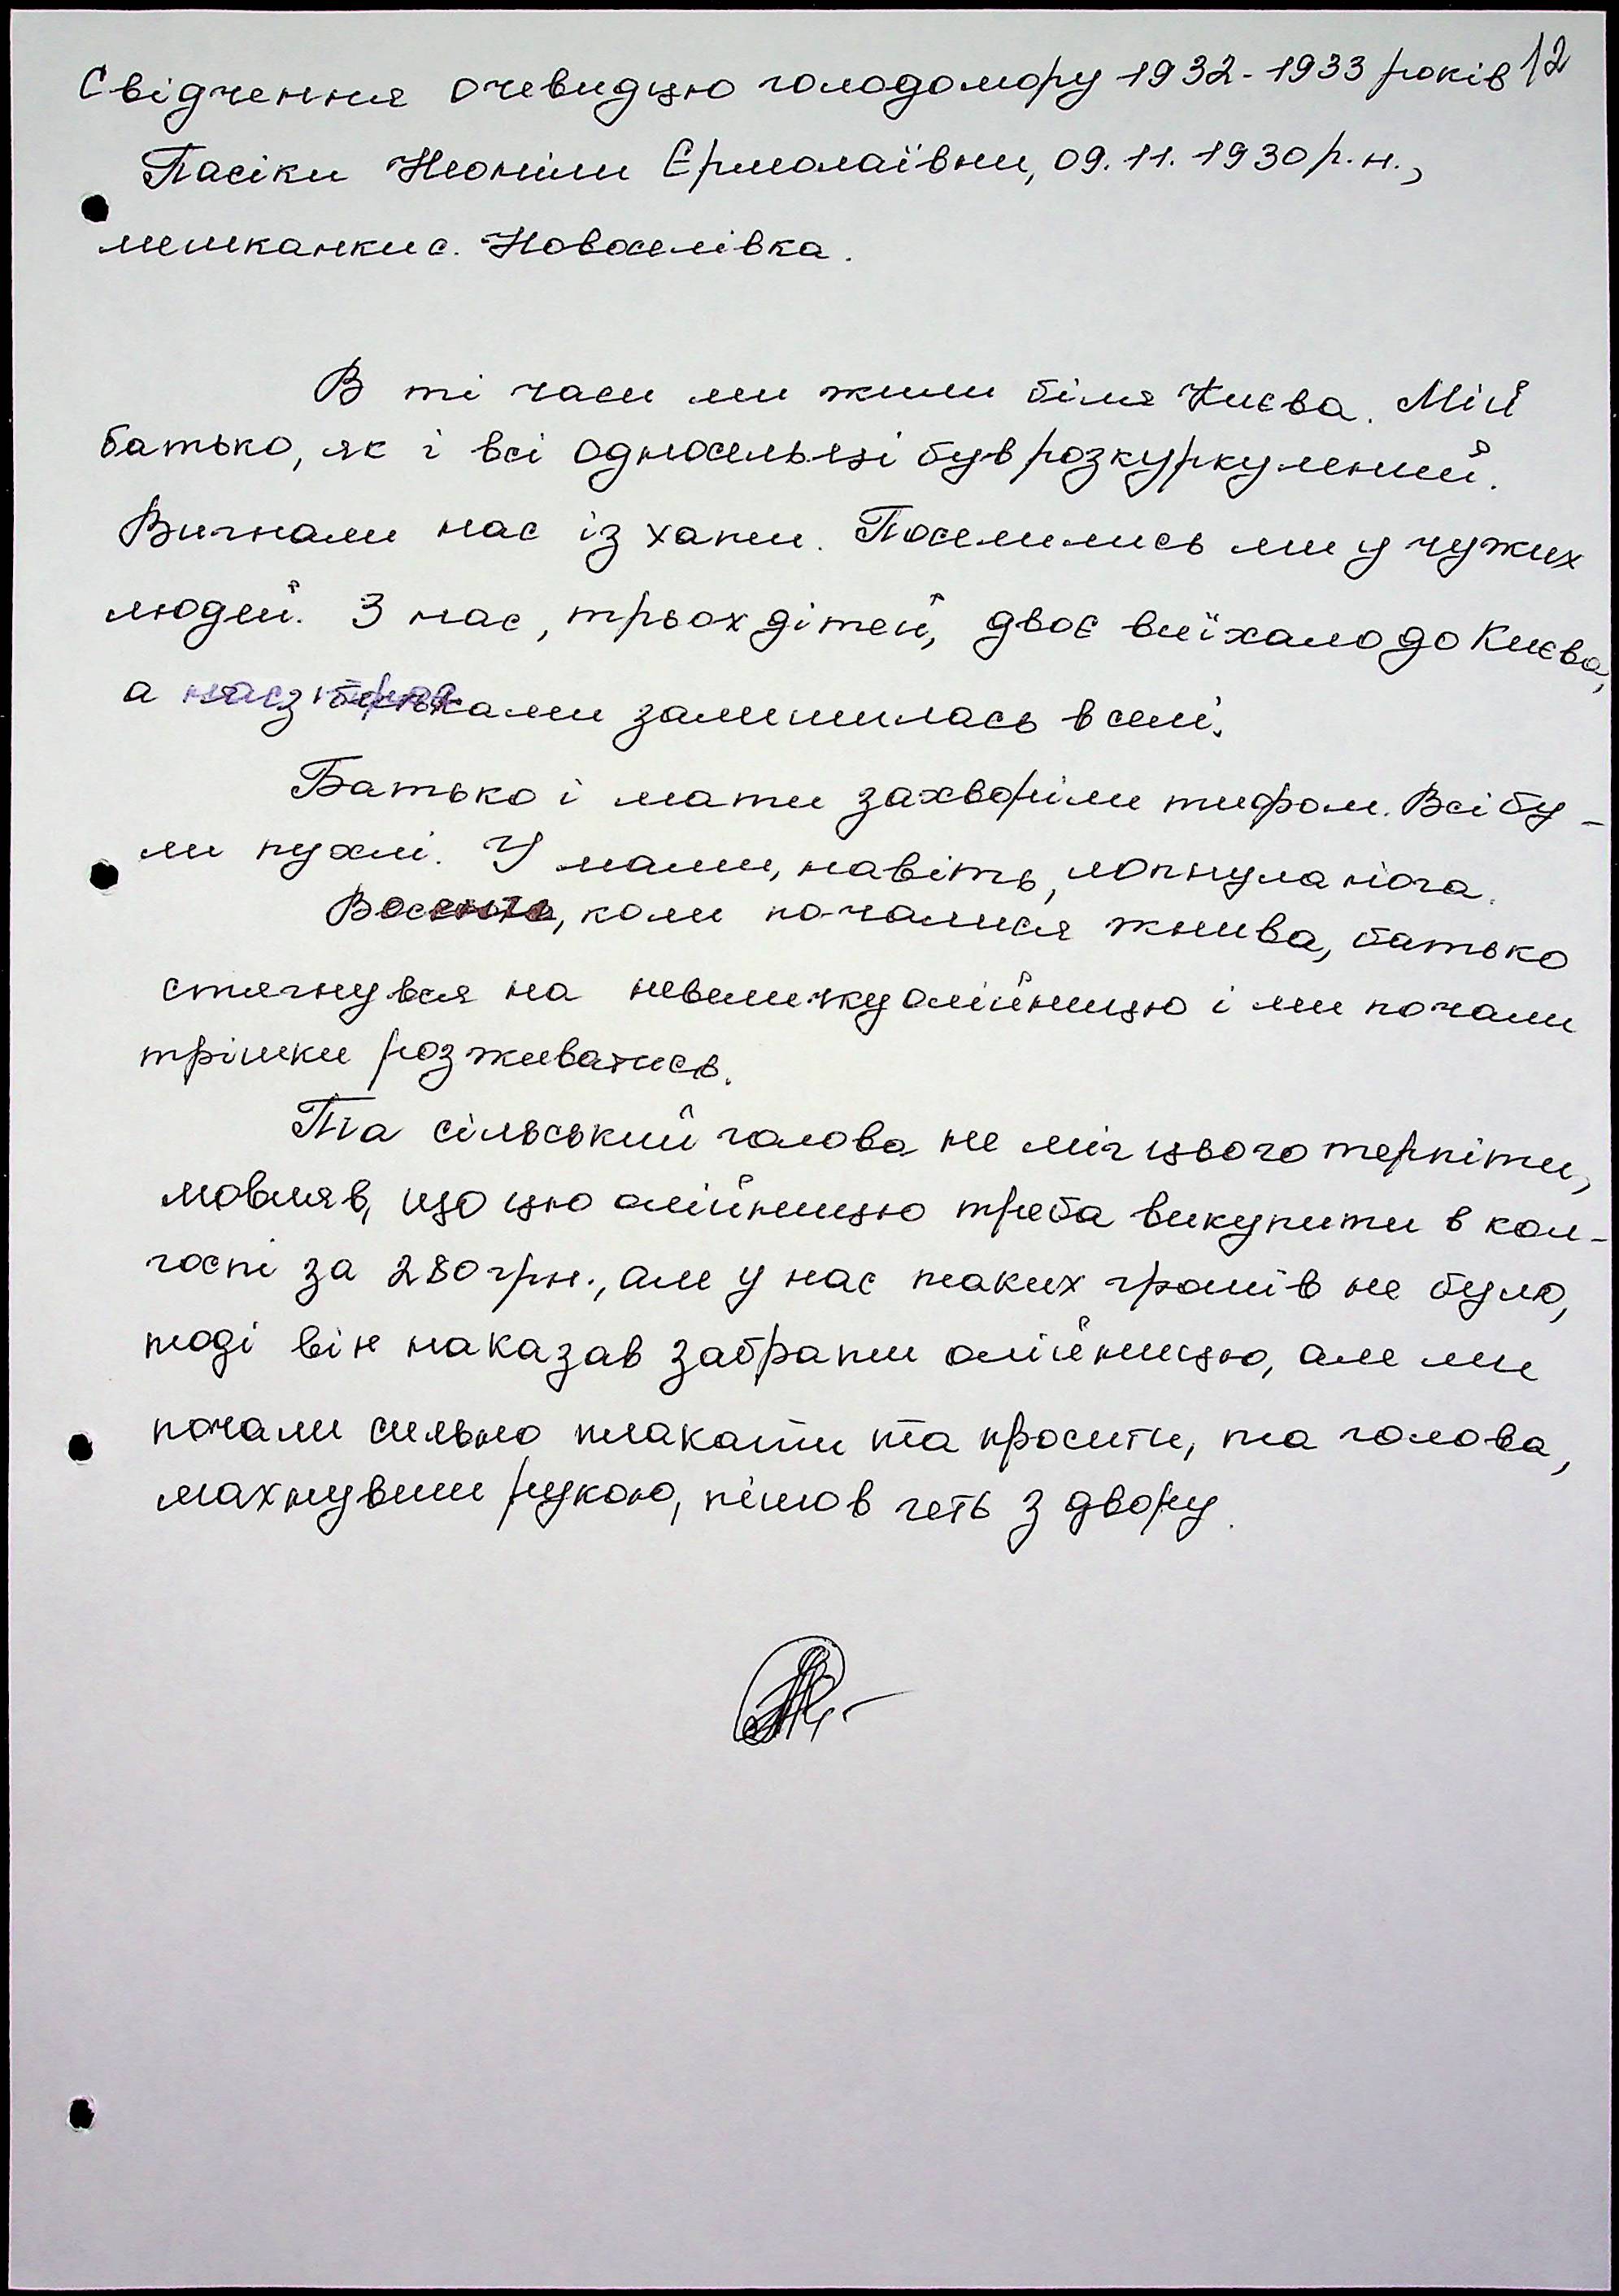 12
Свідчення очевидцю голодомору 1932-1933 років
Пасіки Неоніли Єрмолаївни, 09.11.1930 р.н.,
мешканки с. Новоселівка.
В ті часи ми жили біля Києва. Мій
батько, як і всі односельці був розкуркулений.
Вигнали нас із хати. Поселились ми у чужих
людей. З нас, трьох дітей, двоє виїхало до Києва,
а залишилась в селі.
Батько і мати захворіли тифом. Всі бу-
ли пухлі. У мами, навіть, лопнула нога.
коли почалися жнива, батько
стягнувся на невеличку олійницю і ми почали
трішки розживатись.
Та сільський голова не міг цього терпіти,
мовляв, що цю олійницю треба викупити в кол-
госпі за 280 грн., але у нас таких грошів не було,
тоді він наказав забрати олійницю, але ми
почали сильно плакати та просити, та голова,
махнувши рукою, пішов геть з двору.